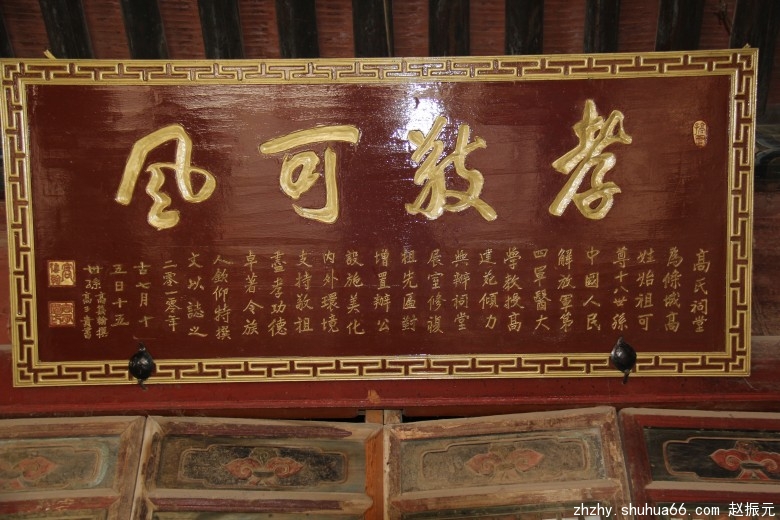 孝敬可風
高氏祠堂
為條城高
姓始祖可
尊十八世孫
中國人民
解放軍第
四軍醫大
學教授高
建苑傾力
興辦祠堂
展室修複
祖先區封
增置辦公
設施美化
內外環境
支持敬祖
盡孝功德
卓著令族
人欽仰特撰
文以誌之
二零一零年
古七月十
五日十五
世孫高
zhzhy.shuhua66.com 赵振元